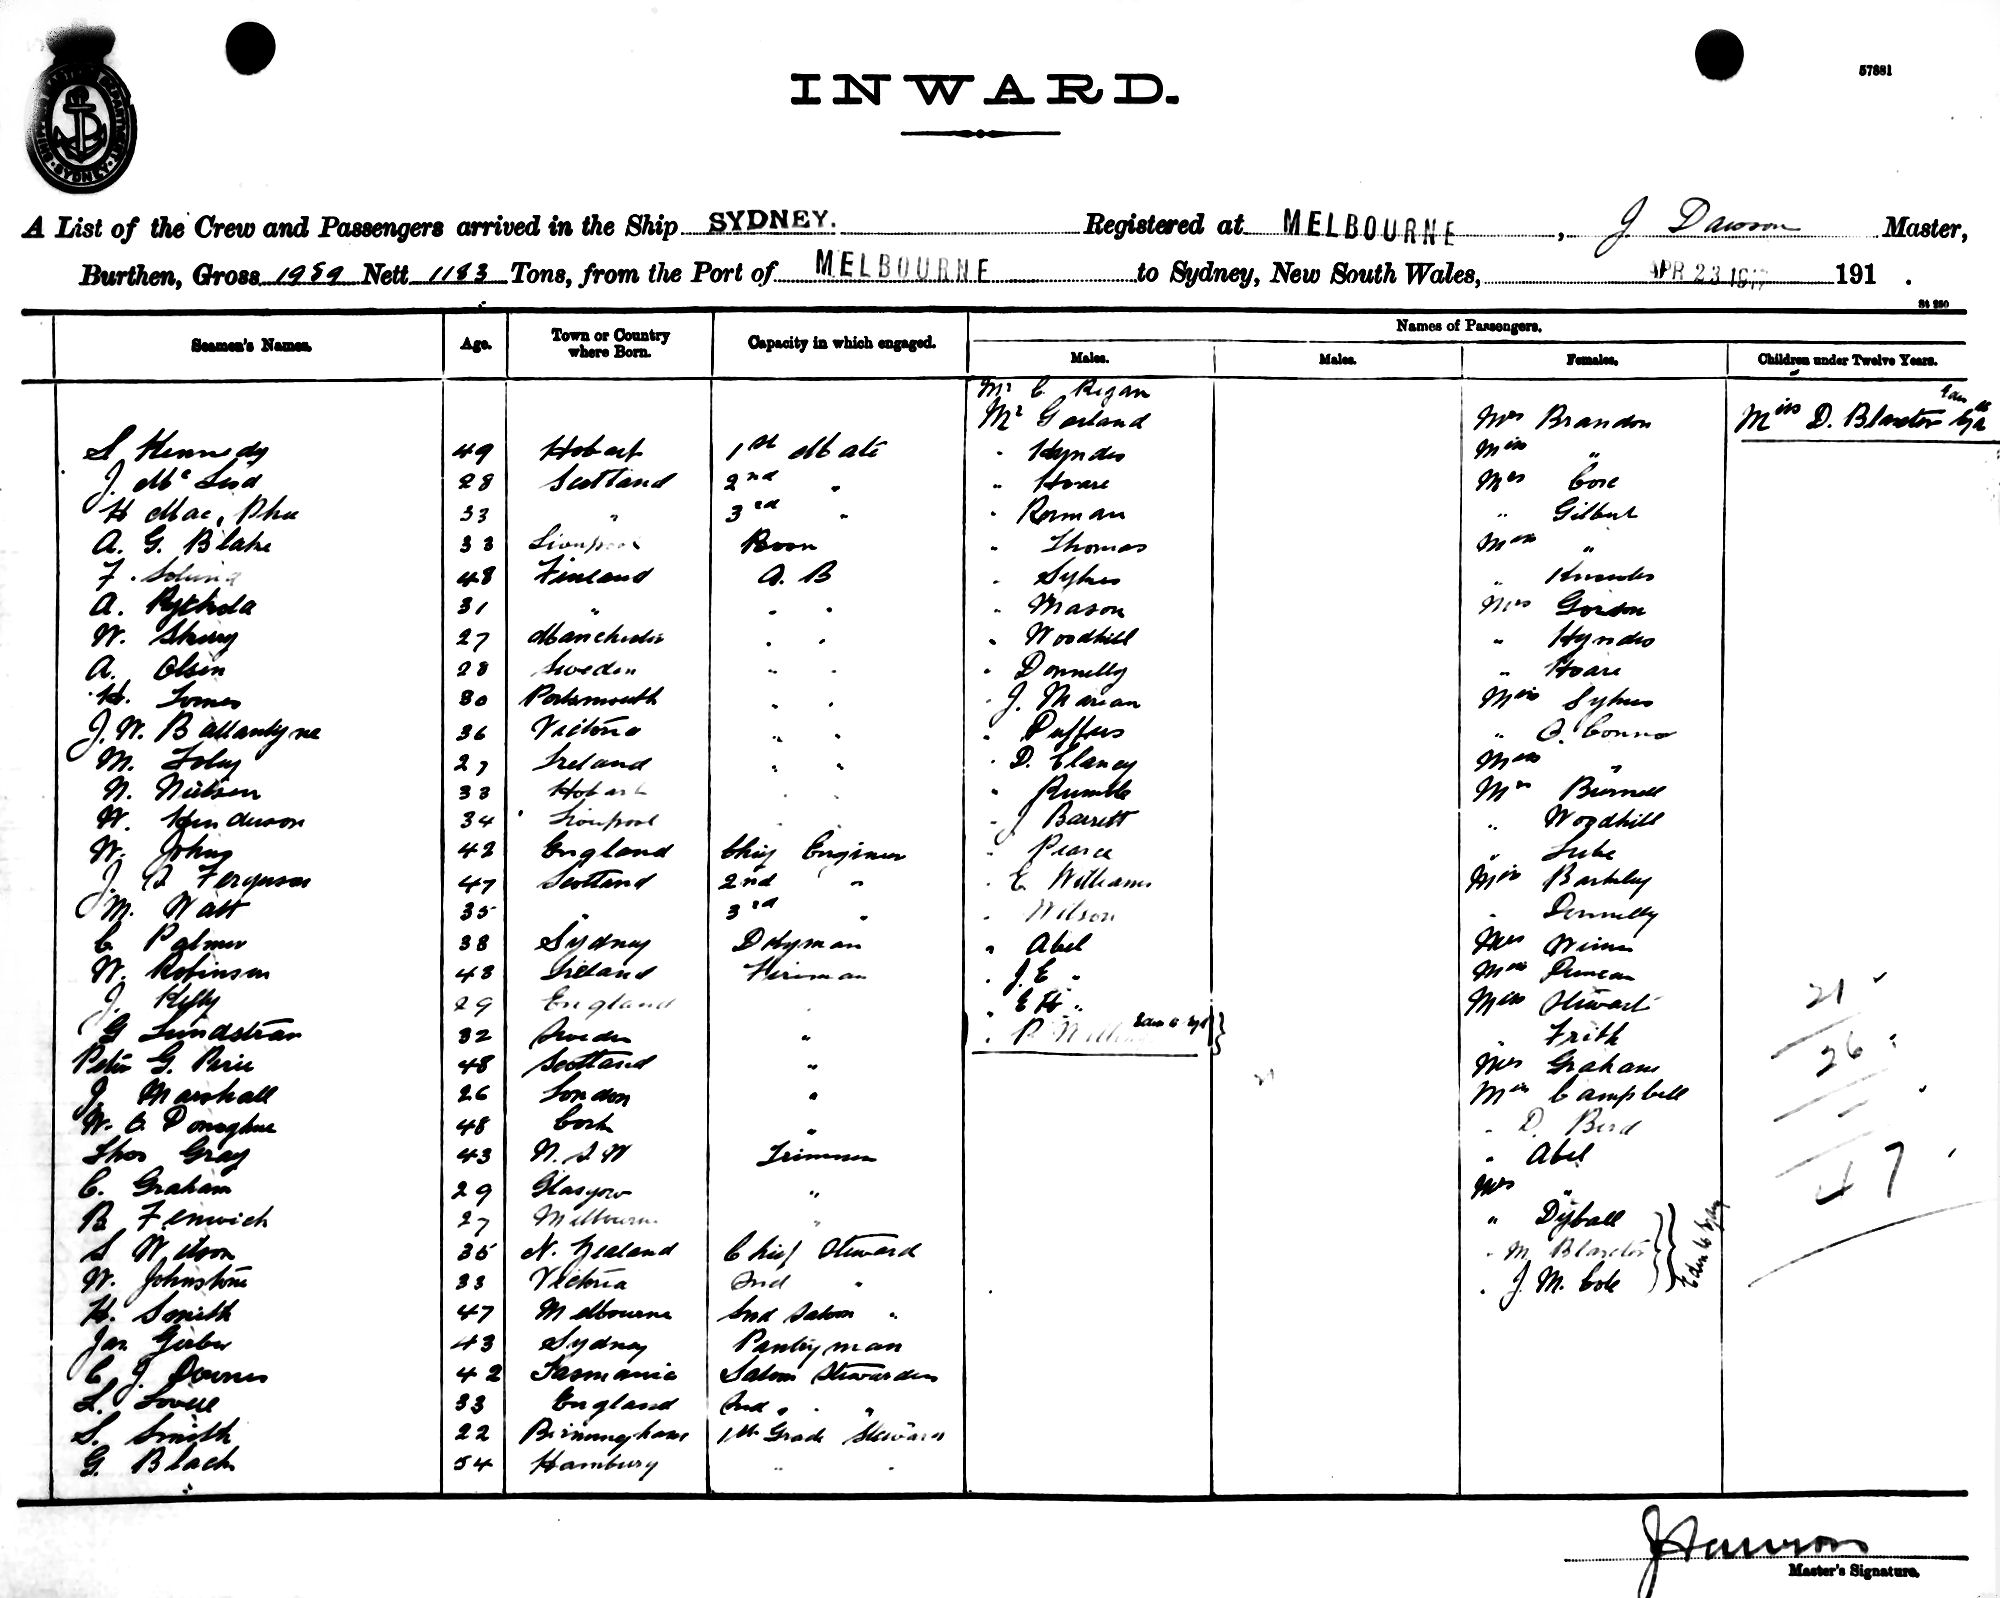 INWARD.
57881
SYDNEY
A List of the Crew and Passengers arrived in the Ship SYDNEY. Registered at MELBOURNE, J Dawson Master,
Burthen, Gross 1989 Nett 1183 Tons, from the Port of MELBOURNE to Sydney, New South Wales, APR 23 1917 191 .
St 250
Names of Passengers.
Seamen's Names. Age. Town or Country where Born. Capacity in which engaged. Males. Males. Females. Children under Twelve Years.
Mr C Regan
Mr Garland Mrs Brandon Miss D. Blaxter
S Kennedy 49 Hobart 1st Mate " Hyndes Miss "
J. McLeod 28 Scotland 2nd " " Hoare Mrs Core
H Mac, Phee 33 " 3rd " " Rorman " Gilbert
A. G. Blake 33 Liverpool Bosn " Thomas Miss "
F. 48 Finland A. B " Sykes " Knowles
A. 31 " " " " Mason Mrs Gordon
W. Sherry 27 Manchester " " " Woodhill " Hyndes
A. Olsen 28 Sweden " " " Donnelly " Hoare
H. Tomes 30 Portsmouth " " " J. Marian Miss Sykes
J. W. Ballantyne 36 Victoria " " " Puffers " O. Connor
M. Foley 27 Ireland " " " D. Clancy Miss "
N. Nielsen 33 Hobart " " " Rumble Mrs Burnell
W. Henderson 34 Liverpool " " " J Barrett " Woodhill
W. Johns 42 England Chief Engineer " Pearce "
J. Ferguson 47 Scotland 2nd " " E Williams Miss Barkley
M. Watt 35 " 3rd " " Wilson " Donnelly
C. Palmer 38 Sydney Dkyman " Abel Mrs
W. Robinson 48 Ireland Fireman " J. E " Miss Duncan
J. Kelly 29 England " " E H " Miss Stewart
G Lundstran 32 Sweden " " R Eden to Syd " Frith
Peter G. Pirie 48 Scotland " Mrs Graham
J. Marshall 26 London " Miss Campbell
W. O Donoghue 48 Cork " " D. Bird
Thos Gray 43 N. S. W Trimmer " Abel
C. Graham 29 Glasgow " Mrs "
B Fenwick 27 Melbourne " " Dyball
S Wilson 35 N. Zealand Chief Steward " M Blaxter
W. Johnstone 33 Victoria 2nd " " J. M. Cole
Eden to Sydney
H. Smith 47 Melbourne 2nd Saloon "
Jas Gerber 43 Sydney Pantryman
C J Downes 42 Tasmania Saloon Stewardess
L. Lovell 33 England 2nd " "
S. Smith 22 Birmingham 1st Grade Steward
G. Black 54 Hamburg " "
21
26
47
J Dawson
Master's Signature.